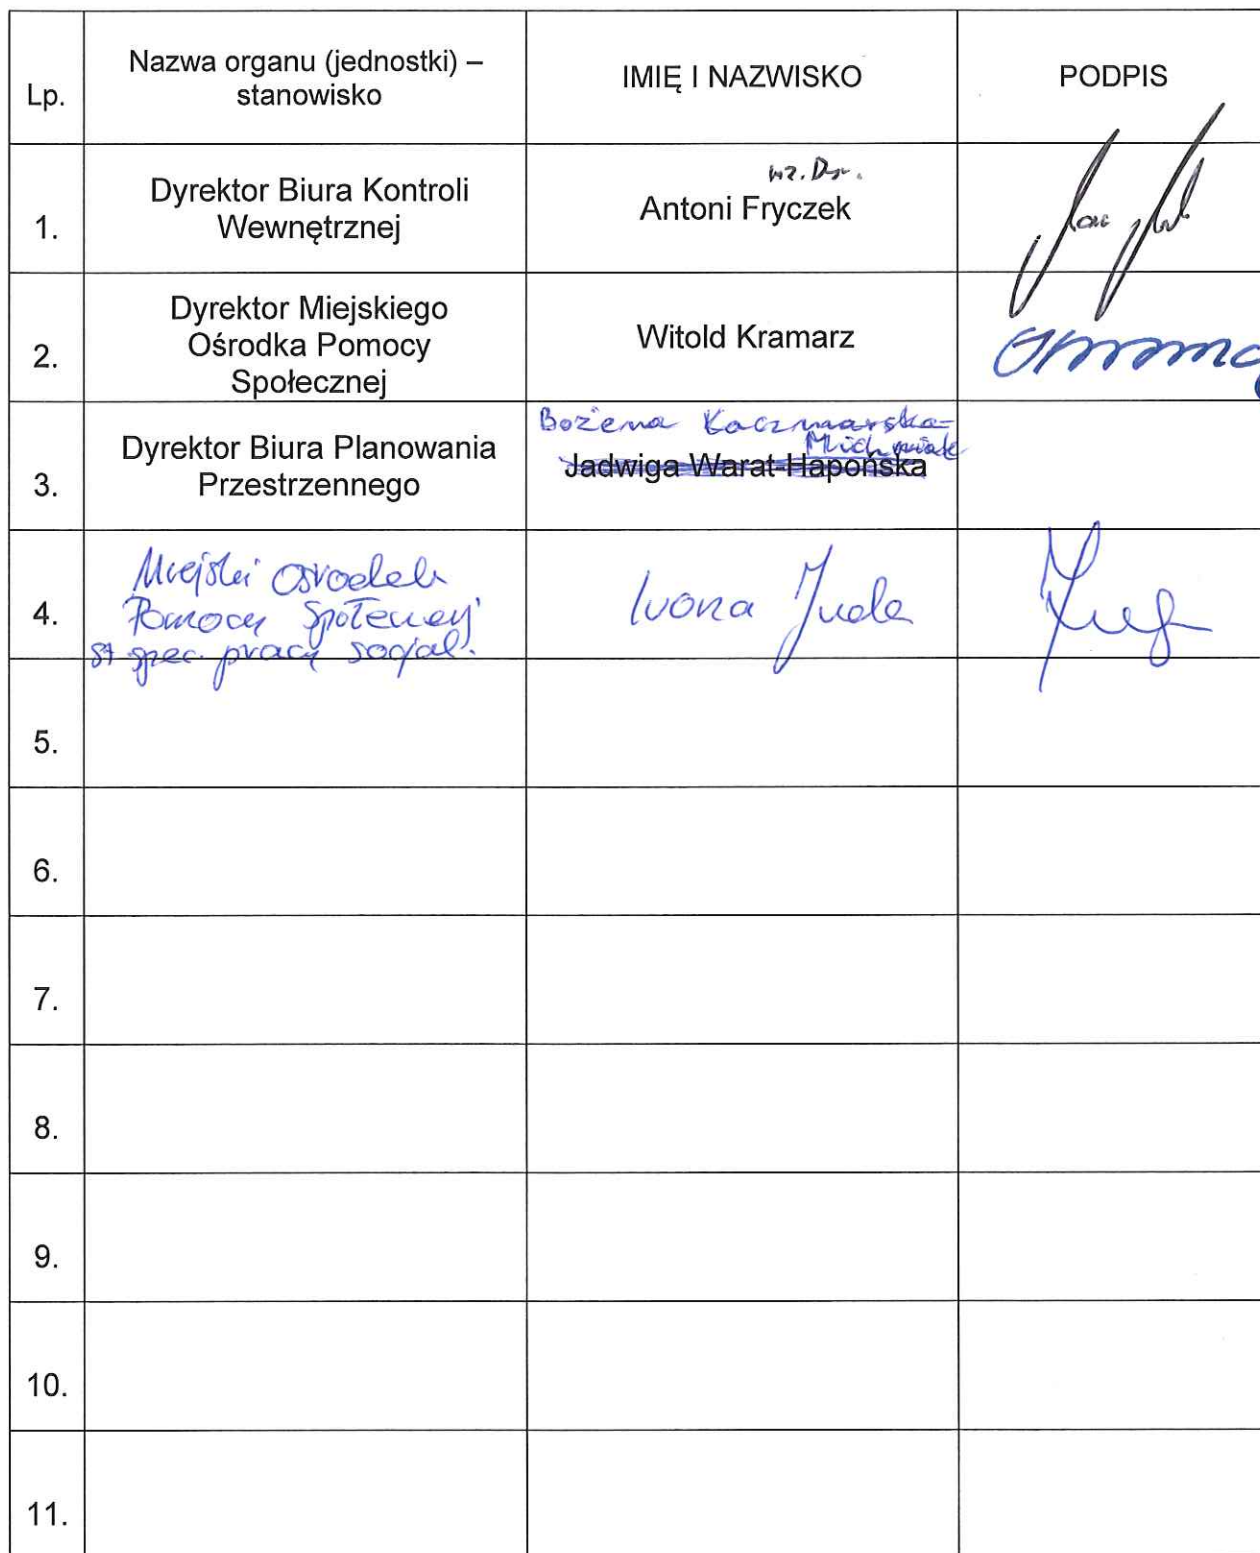 Lp.
Nazwa organu (jednostki) –
stanowisko
IMIĘ I NAZWISKO
PODPIS
1.
Dyrektor Biura Kontroli
Wewnętrznej
wz. Dyr.
Antoni Fryczek
2.
Dyrektor Miejskiego
Ośrodka Pomocy
Społecznej
Witold Kramarz
3.
Dyrektor Biura Planowania
Przestrzennego
Bożena Kaczmarska-
Michniak
Jadwiga Warat-Hapońska
4.
Miejski Ośrodek
Pomocy Społecznej
st spec. pracy socjal.
Iwona Juda
5.
6.
7.
8.
9.
10.
11.